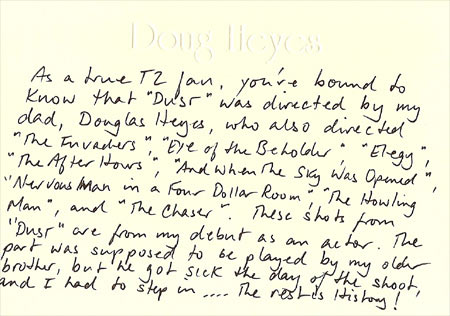 Doug Heyes
As a true TZ fan, you're bound to
know that "Dust" was directed by my
dad, Douglas Heyes, who also directed
"The Invaders", "Eye of the Beholder", "Elegy",
"The After Hours", "And When The Sky Was Opened",
"Nervous Man in a Four Dollar Room", "The Howling
Man", and "The Chaser". These shots from
"Dust" are from my debut as an actor. The
part was supposed to be played by my older
brother, but he got sick the day of the shoot,
and I had to step in .... The rest is History!